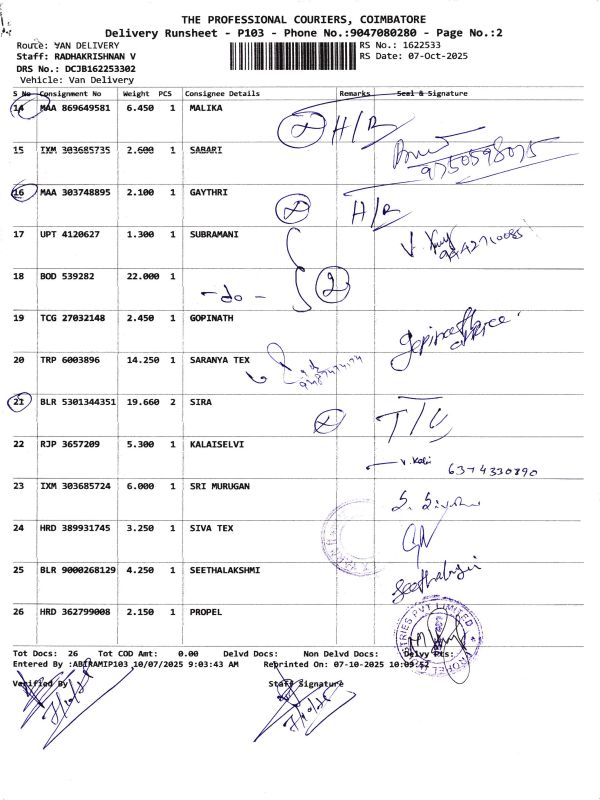 THE PROFESSIONAL COURIERS, COIMBATORE
Delivery Runsheet - P103 - Phone No.:9047080280 - Page No.:2
Route: VAN DELIVERY
Staff: RADHAKRISHNAN V
DRS No.: DCJB162253302
Vehicle: Van Delivery
RS No.: 1622533
RS Date: 07-Oct-2025
S No Consignment No Weight PCS Consignee Details Remarks Seal & Signature
14 MAA 869649581 6.450 1 MALIKA
H/R
15 IXM 303685735 2.600 1 SABARI
9750598075
16 MAA 303748895 2.100 1 GAYTHRI
H/R
17 UPT 4120627 1.300 1 SUBRAMANI
9442710085
18 BOD 539282 22.000 1
- do - 2
19 TCG 27032148 2.450 1 GOPINATH
20 TRP 6003896 14.250 1 SARANYA TEX
21 BLR 5301344351 19.660 2 SIRA
22 RJP 3657209 5.300 1 KALAISELVI
6374330890
23 IXM 303685724 6.000 1 SRI MURUGAN
24 HRD 389931745 3.250 1 SIVA TEX
25 BLR 9000268129 4.250 1 SEETHALAKSHMI
26 HRD 362799008 2.150 1 PROPEL
Tot Docs: 26 Tot COD Amt: 0.00 Delvd Docs: Non Delvd Docs: Delvy Pts:
Entered By :ABIRAMIP103 10/07/2025 9:03:43 AM Reprinted On: 07-10-2025 10:09:52
Verified By Staff Signature